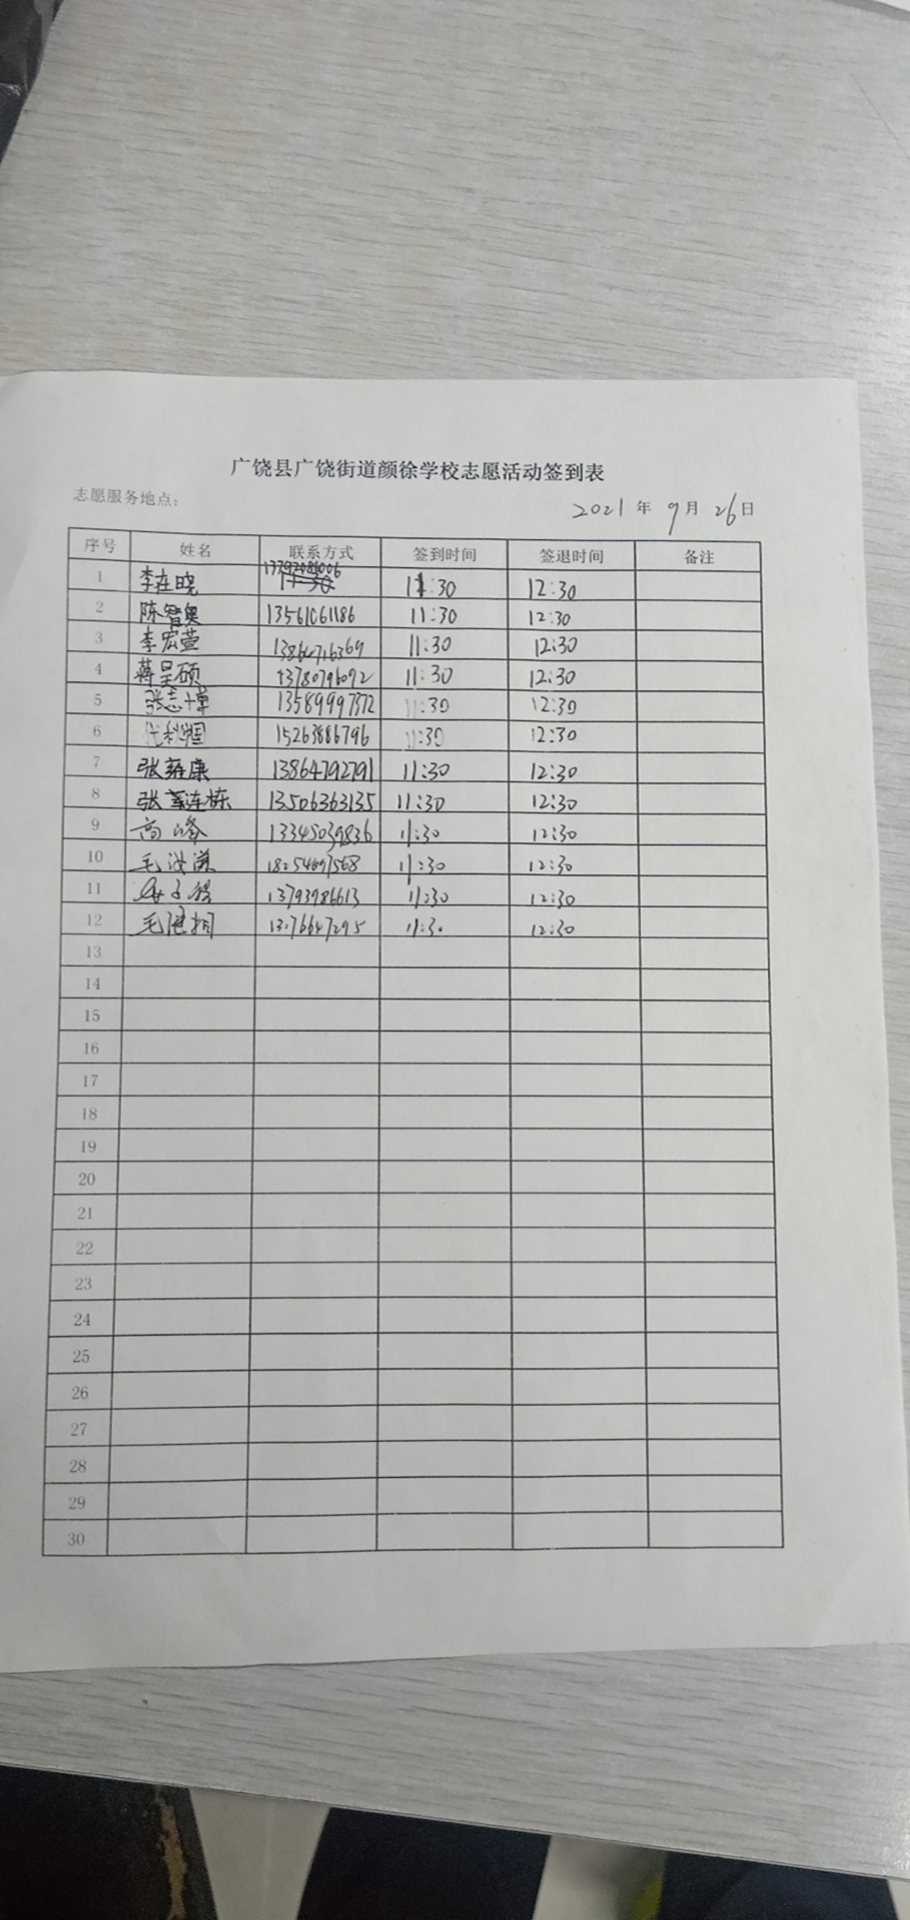 广饶县广饶街道颜徐学校志愿活动签到表
志愿服务地点： 2021 年 9 月 26 日
序号 姓名 联系方式 签到时间 签退时间 备注
1 李在晓 11:30 12:30
2 陈智奥 13561061186 11:30 12:30
3 李宏萱 13864716369 11:30 12:30
4 蒋呈硕 13780796092 11:30 12:30
5 张志 13589997372 11:30 12:30
6 15263886796 11:30 12:30
7 张 康 13864792791 11:30 12:30
8 张 连栋 13506363135 11:30 12:30
9 高峰 13345039836 11:30 12:30
10 毛 11:30 12:30
11 13793986613 11:30 12:30
12 毛 11:30 12:30
13
14
15
16
17
18
19
20
21
22
23
24
25
26
27
28
29
30